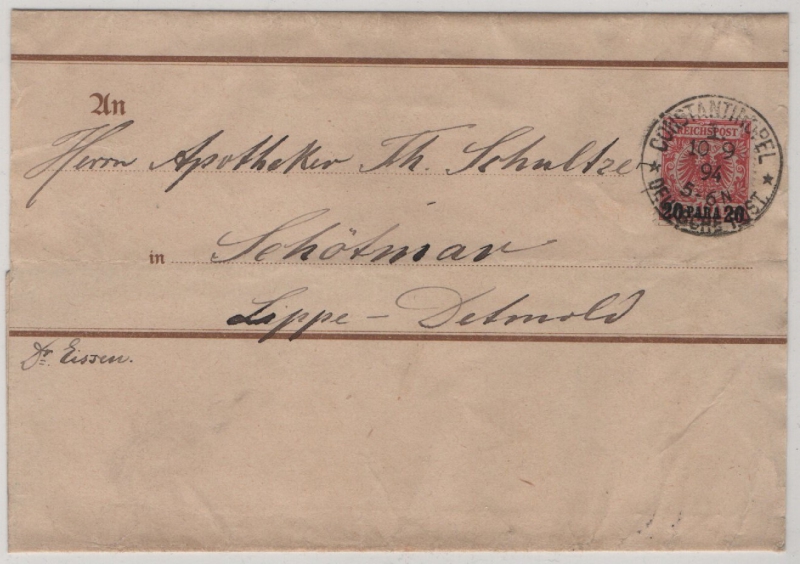 An
Herrn Apotheker Th. Schultze
in Schötmar
Lippe - Detmold
Dr. Eissen.
CONSTANTINOPEL
1
10 9
94
5-6N
DEUTSCHE POST.
REICHSPOST
20 PARA 20